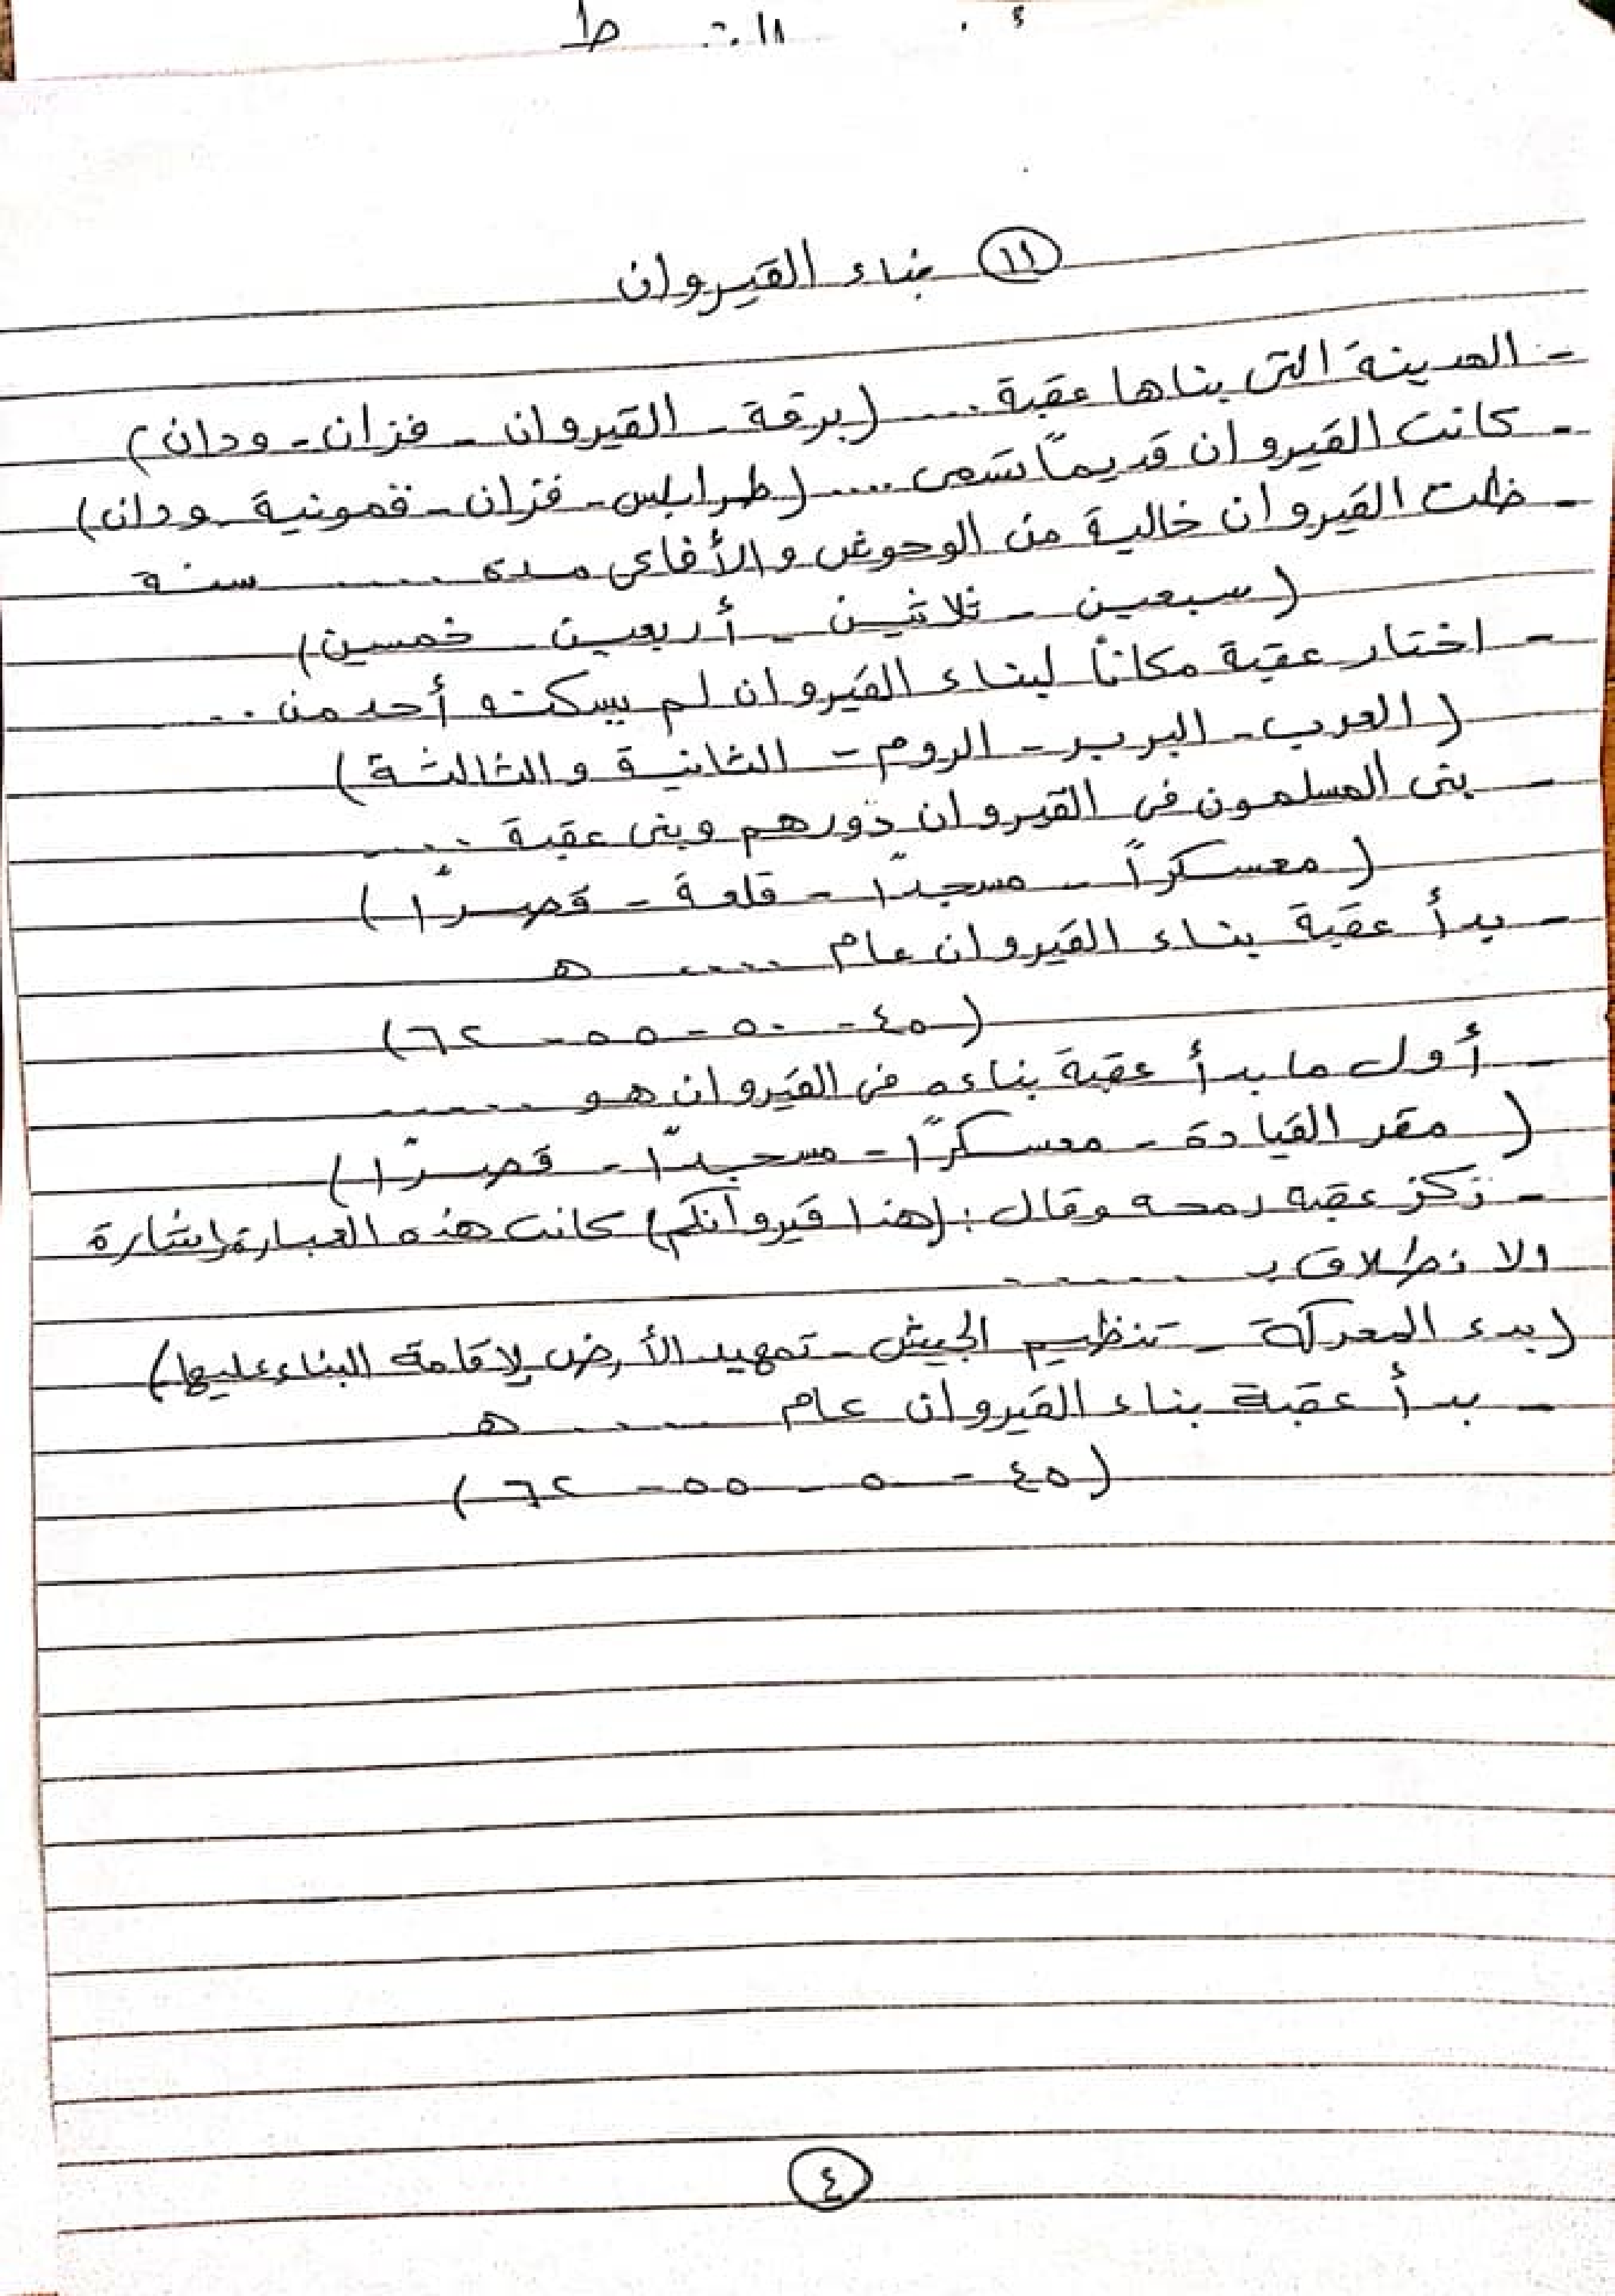 ١١ بناء القيروان
- المدينة التى بناها عقبة .... (برقة - القيروان - فزان - ودان)
- كانت القيروان قديمًا تسمى .... (طرابلس - فزان - قمونية - ودان)
- ظلت القيروان خالية من الوحوش والأفاعى مدة .... سنة
(سبعين - ثلاثين - أربعين - خمسين)
- اختار عقبة مكانًا لبناء القيروان لم يسكنه أحد من ...
(العرب - البربر - الروم - الثانية والثالثة)
- بنى المسلمون فى القيروان دورهم وبنى عقبة ....
(معسكرًا - مسجدًا - قلعة - قصرًا)
- بدأ عقبة بناء القيروان عام .... هـ
(٤٥ - ٥٠ - ٥٥ - ٦٢)
- أول ما بدأ عقبة بناءه فى القيروان هو .....
(مقر القيادة - معسكرًا - مسجدًا - قصرًا)
- ركز عقبه رمحه وقال: (هذا قيروانكم) كانت هذه العبارة إشارة
الانطلاق بـ .....
(بدء المعركة - تنظيم الجيش - تمهيد الأرض لإقامة البناء عليها)
- بدأ عقبة بناء القيروان عام .... هـ
(٤٥ - ٥ - ٥٥ - ٦٢)
٤